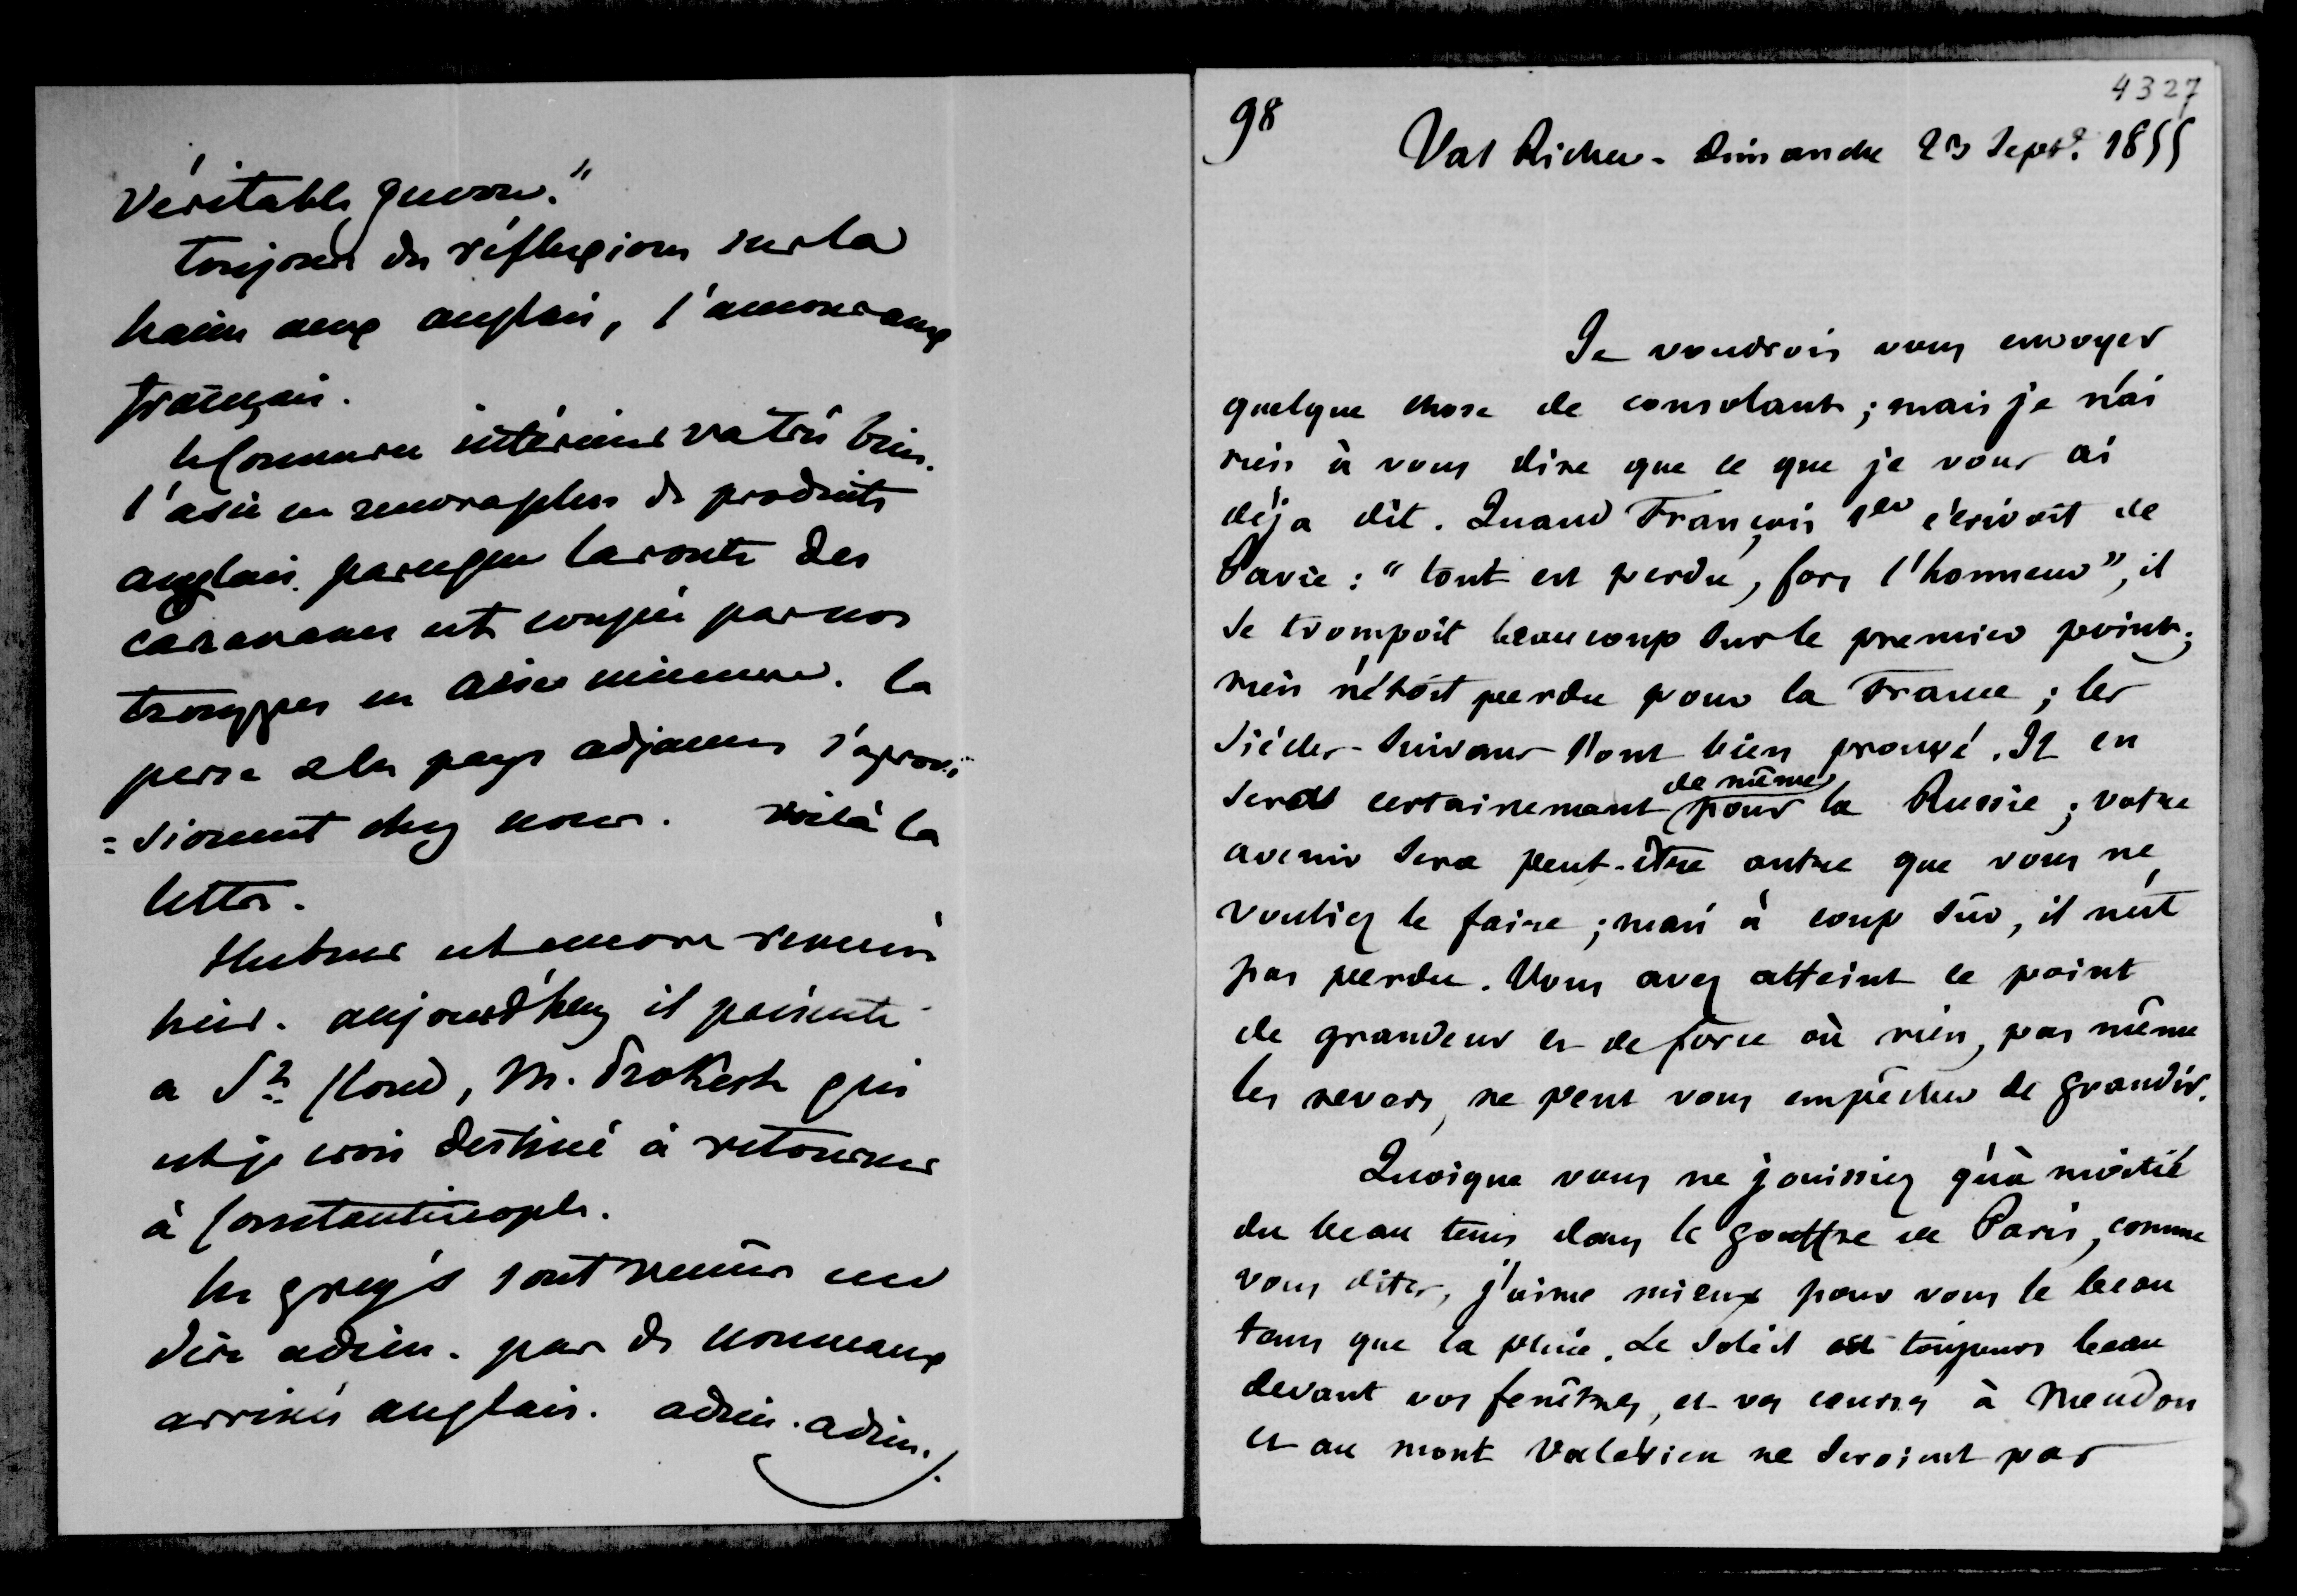 véritable guerre."
toujours des réflexions sur la
haine aux anglais, l'amour aux
français.
le Commerce intérieur va très bien.
l'asie ne recevra plus de produits
anglais, parceque la route des
caravanes est coupée par nos
trouppes en asie mineure. la
perse & les pays adjacens s'aprovi
=sionnent chez nous. voilà la
lettre.
Hubner est encore venu
hier. aujourd'huy il présente
a St Cloud, M. Prokesh qui
est je crois destiné à retourner
à Constantinople.
les greys sont venus me
dire adieu. pas de nouveaux
arrivés anglais. adieu. adieu.
4327
98
Val Richer - Dimanche 23 Sept. 1855
Je voudrois vous envoyer
quelque chose de consolant ; mais je n'ai
rien à vous dire que ce que je vous ai
déja dit. Quand François 1er écrivoit de
Pavie : "tout est perdu, fors l'honneur", il
se trompoit beaucoup sur le premier point ;
rien n'étoit perdu pour la France ; les
siècles suivans l'ont bien prouvé. Il en
sera certainement de même pour la Russie ; votre
avenir sera peut-être autre que vous ne
vouliez le faire ; mais à coup sûr, il n'est
pas perdu. Vous avez atteint ce point
de grandeur et de force où rien, pas même
les revers, ne peut vous empêcher de grandir.
Quoique vous ne jouissiez qu'à moitié
du beau tems dans le gouffre de Paris, comme
vous dites, j'aime mieux pour vous le beau
tems que la pluie. Le soleil est toujours beau
devant vos fenêtres, et vos courses à Meudon
et au mont Valérien ne seroient pas